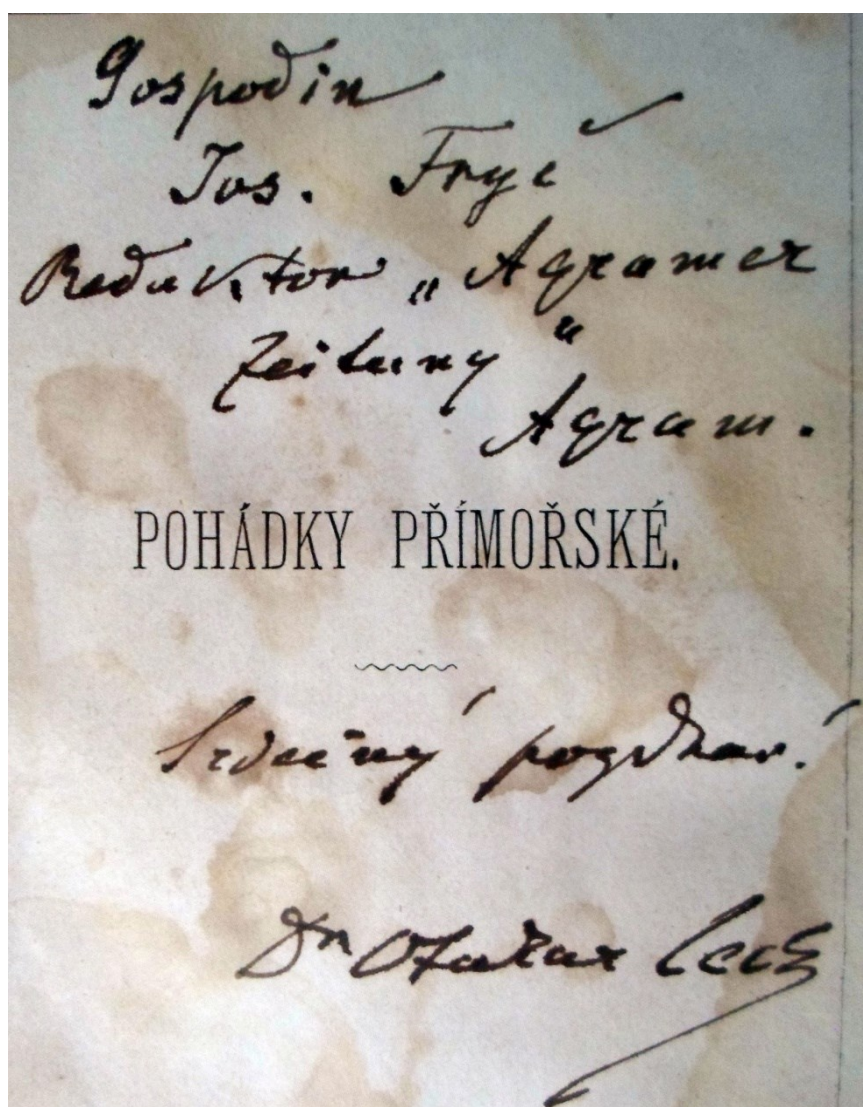 Gospodin
Jos. Fryć
Redaktor „Agramer
Zeitung“
Agram.
POHÁDKY PŘÍMOŘSKÉ.
Srdečný pozdrav!
Dr Otakar